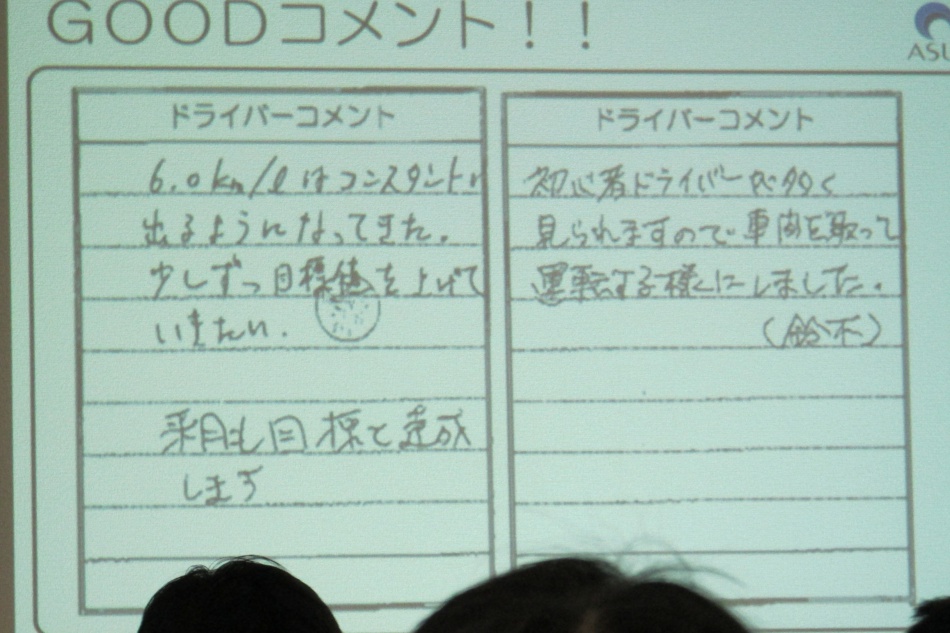 GOODコメント！！
ASU
ドライバーコメント
6.0km/lはコンスタントに
出るようになってきた。
少しずつ目標値を上げて
いきたい.
来月も目標を達成
します
ドライバーコメント
初心者ドライバーが多く
見られますので車間を取って
運転する様にしました.
(鈴木)